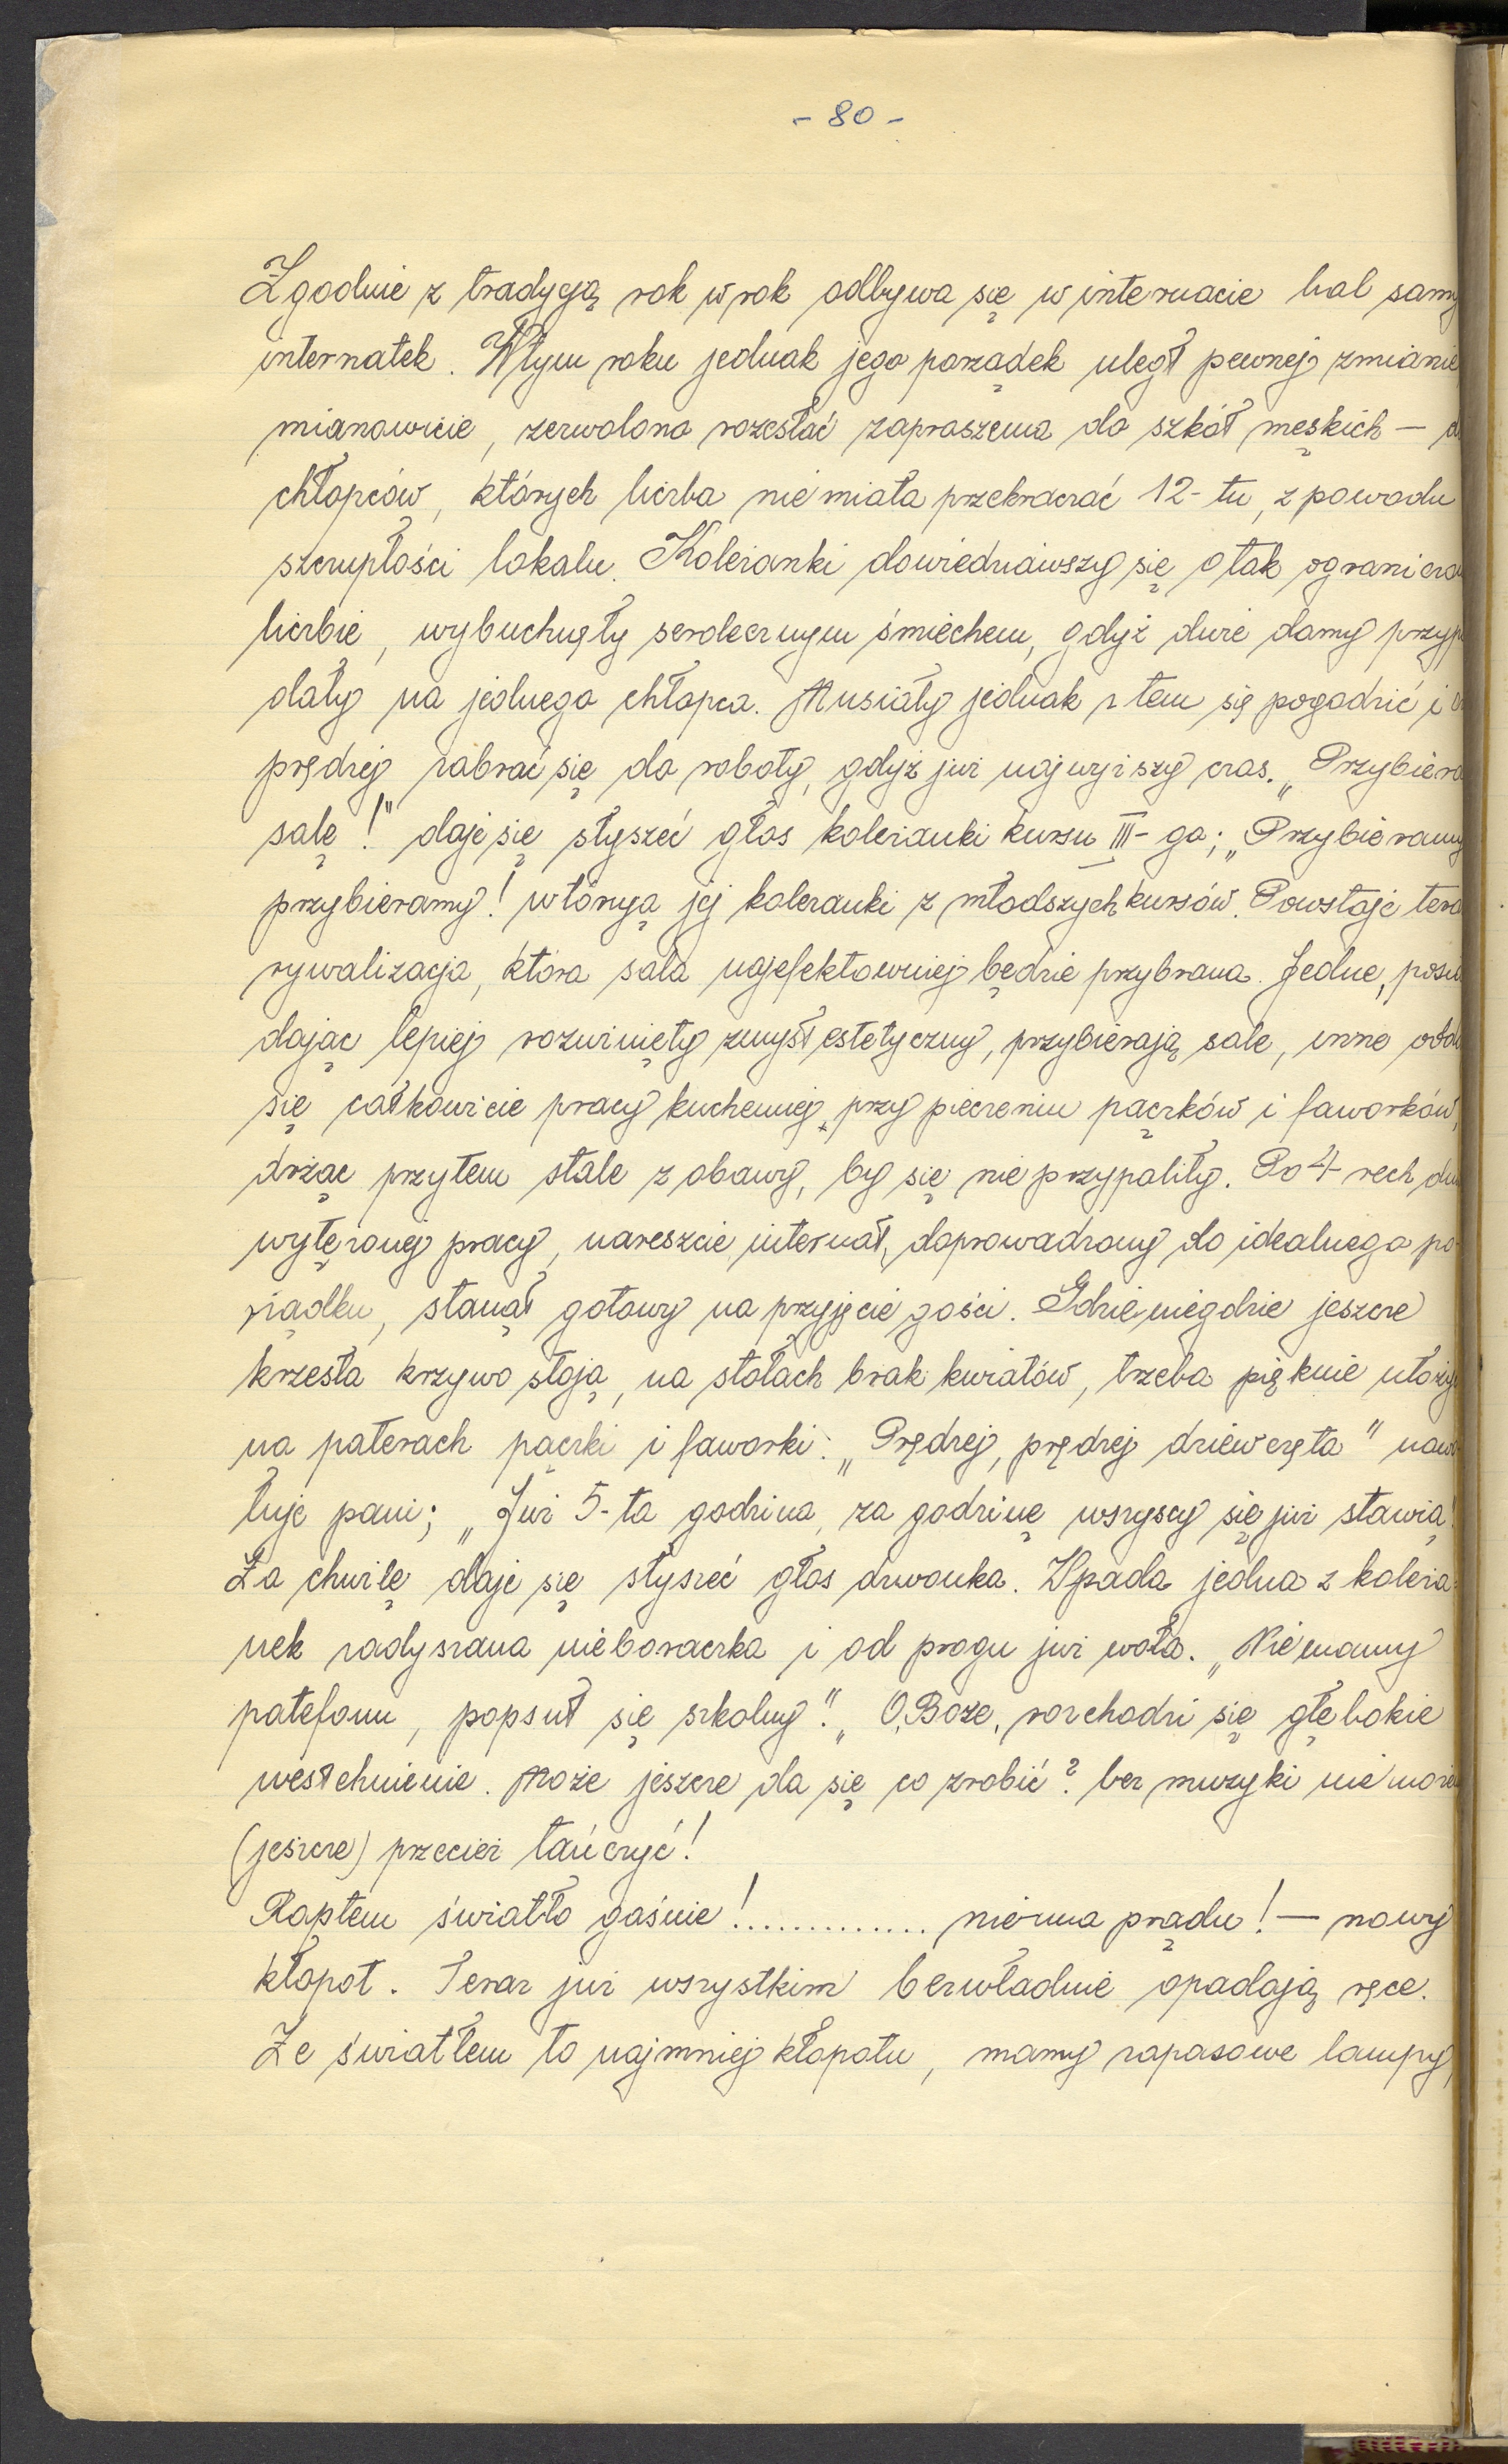 - 80 -
Zgodnie z tradycją rok w rok odbywa się w internacie bal samy
internatek. W tym roku jednak jego porządek uległ pewnej zmianie
mianowicie, zezwolono rozesłać zaproszenia do szkół męskich — d
chłopców, których liczba nie miała przekraczać 12-tu, z powodu
szczupłości lokalu. Koleżanki dowiedziawszy się o tak ogranicza
liczbie, wybuchnęły serdecznym śmiechem, gdyż dwie damy przyp
dały na jednego chłopca. Musiały jednak z tem się pogodzić i c
prędzej zabrać się do roboty, gdyż już najwyższy czas. „Przybiera
salę!" daje się słyszeć głos koleżanki kursu III-go; „Przybieramy
przybieramy! wtórują jej koleżanki z młodszych kursów. Powstaje tera
rywalizacja, która sala najefektowniej będzie przybrana. Jedne, posia
dając lepiej rozwinięty zmysł estetyczny, przybierają sale, inne odda
się całkowicie pracy kuchennej, przy pieczeniu pączków i faworków,
drżąc przytem stale z obawy, by się nie przypaliły. Po 4-rech dni
wytężonej pracy, nareszcie internat, doprowadzony do idealnego po-
rządku, stanął gotowy na przyjęcie gości. Gdzieniegdzie jeszcze
krzesła krzywo stoją, na stołach brak kwiatów, trzeba pięknie ułoży
na paterach pączki i faworki: „Prędzej, prędzej dziewczęta" nawo-
łuje pani; „Już 5-ta godzina, za godzinę wszyscy się już stawią!
Za chwilę daje się słyszeć głos dzwonka. Wpada jedna z koleża-
nek zadyszana nieboraczka i od progu już woła. „Nie mamy
patefonu, popsuł się szkolny." „O, Boże, rozchodzi się głębokie
westchnienie. Może jeszcze da się co zrobić? bez muzyki nie może
(jeszcze) przecież tańczyć!
Raptem światło gaśnie!............. niema prądu! — nowy
kłopot. Teraz już wszystkim bezwładnie opadają ręce.
Ze światłem to najmniej kłopotu, mamy zapasowe lampy,